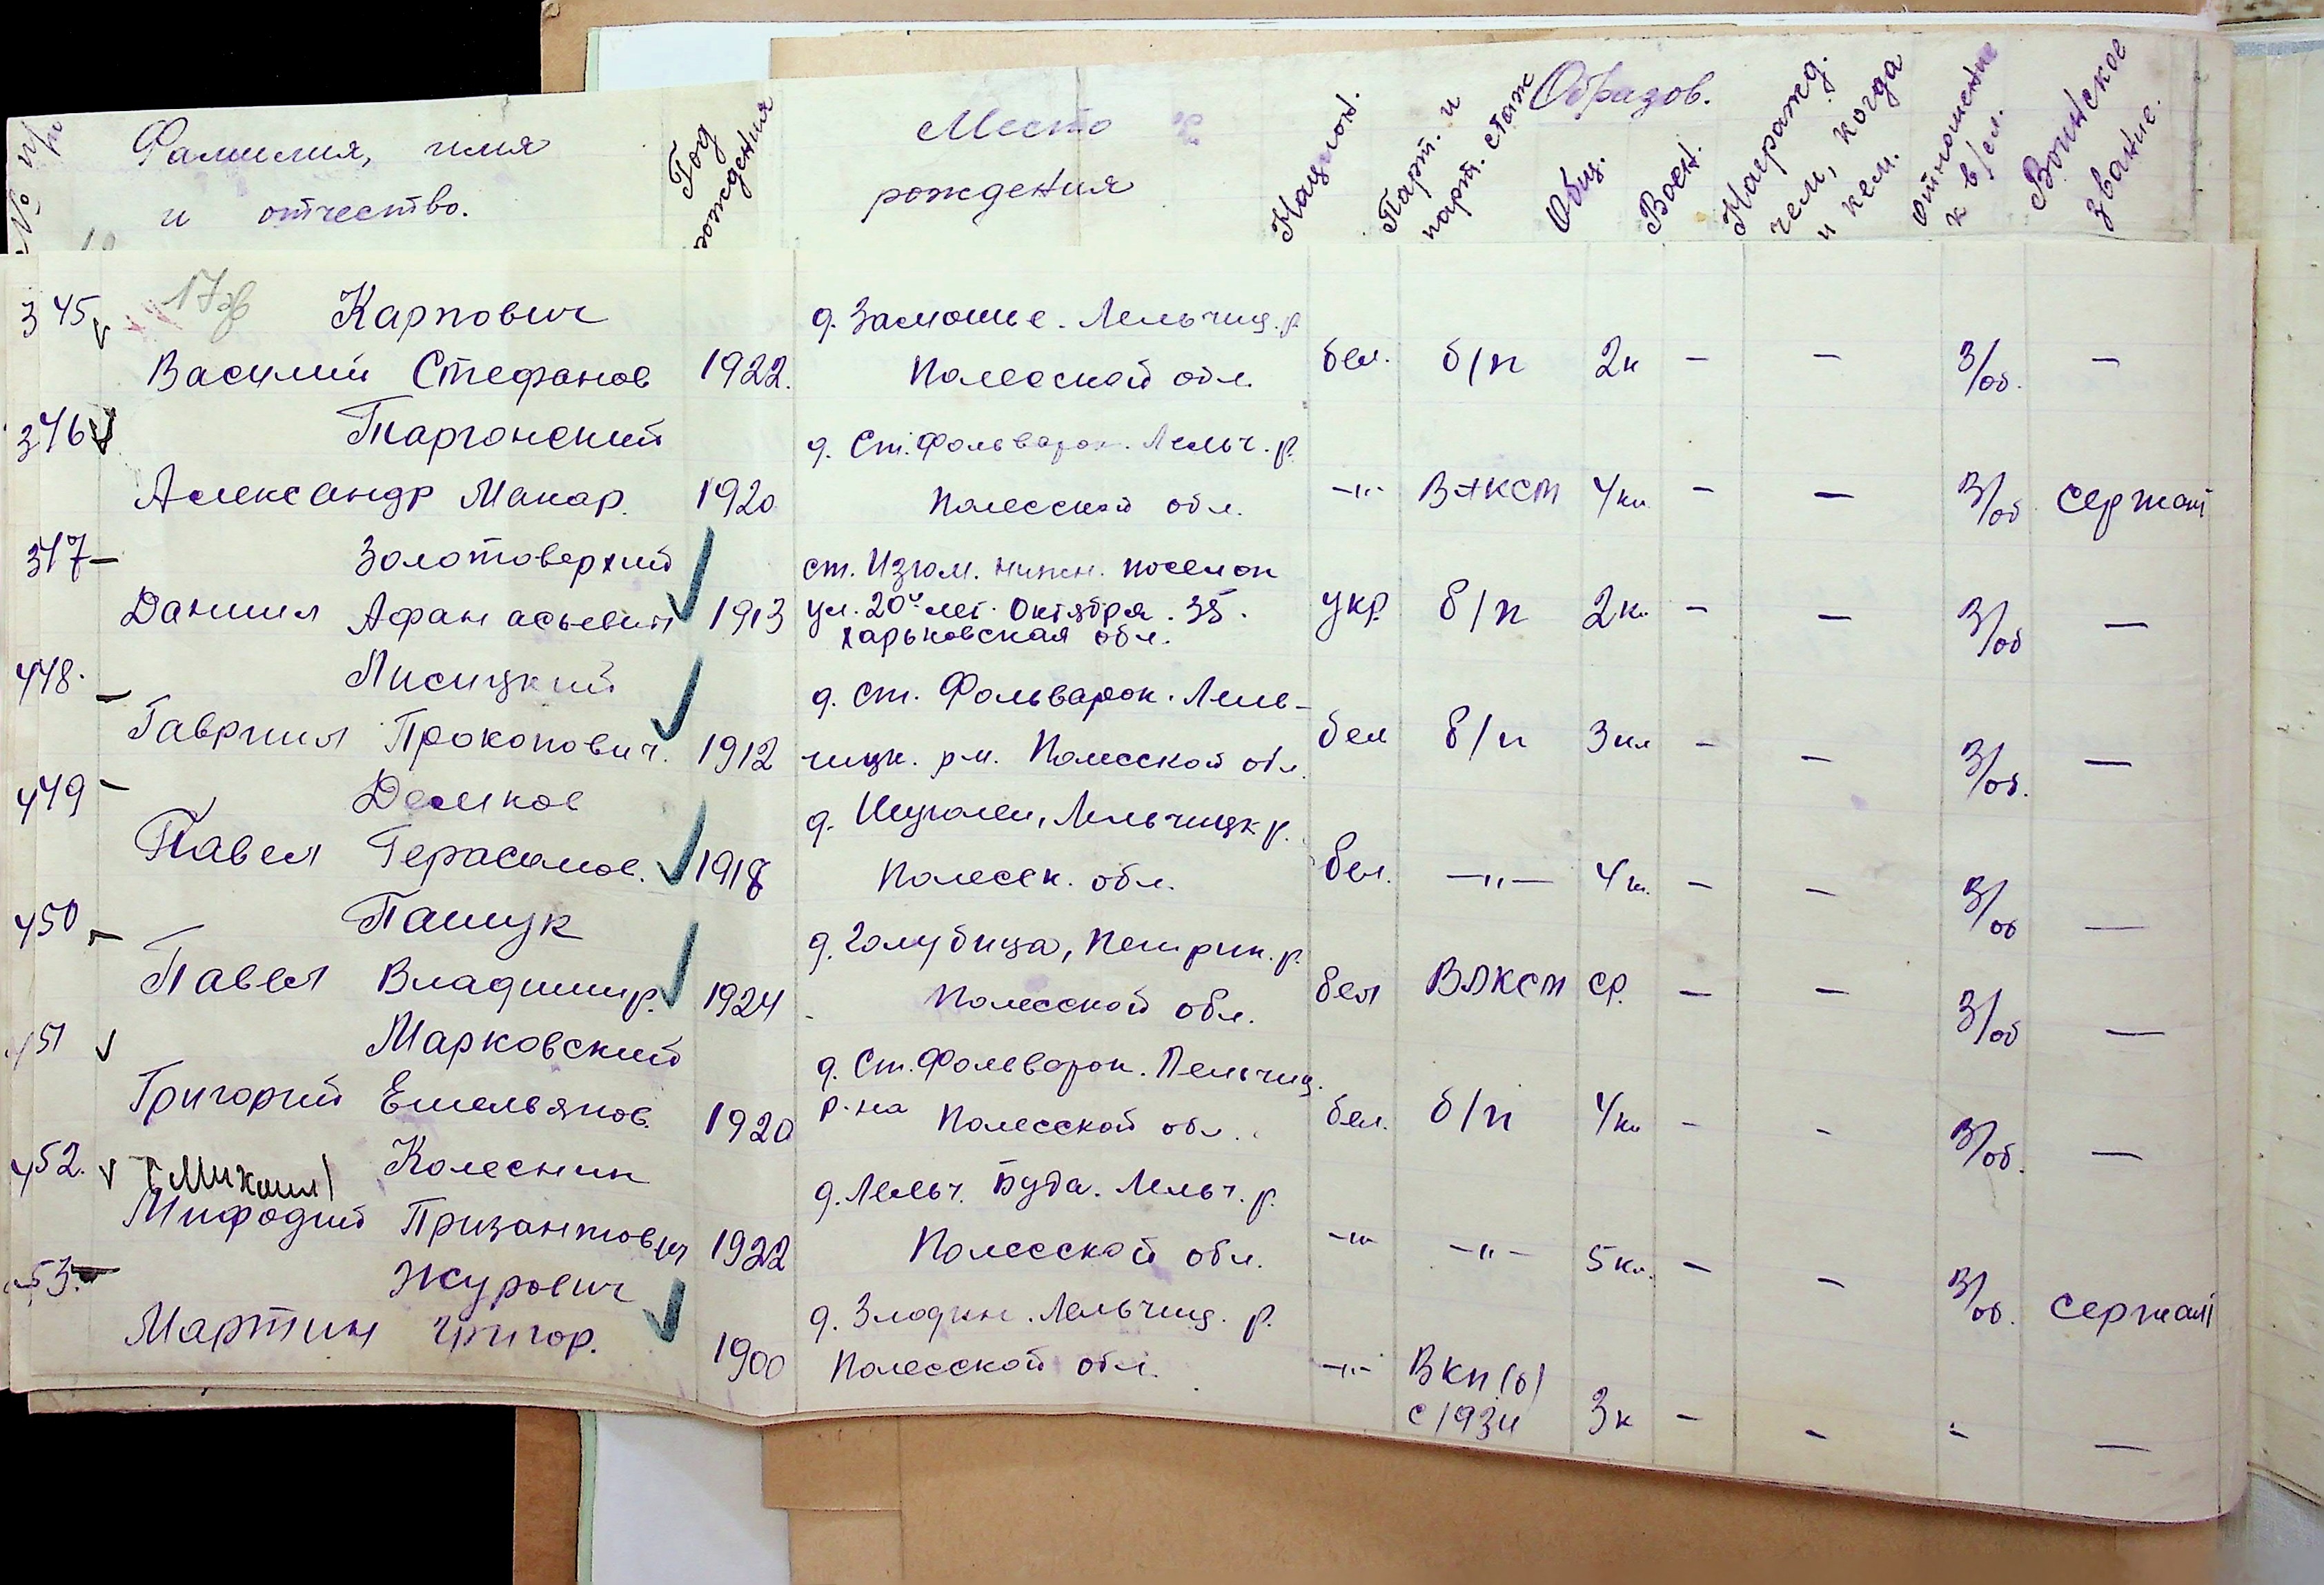 № п/п
Фамилия, имя
и отчество.
Год
рождения
Место
рождения
Национ.
Парт. и
парт. стаж
Образов.
Общ.
Воен.
Награжд.
чем, когда
и кем.
Отношение
к в/сл.
Воинское
звание.
345 Карпович д. Замошье. Лельчиц. р
Василий Стефанов 1922. Полесской обл. бел. б/п 2к — — З/об. —
346 Таргонский д. Ст. Фольварок. Лельч. р.
Александр Макар. 1920 Полесской обл. —"— ВЛКСМ 4 кл — — З/об сержант
347 — Золотоверхий ст. Изюм. нижн. поселок
Даниил Афанасьевич 1913 ул. 20 лет. Октября. 35. укр. б/п 2 к. — — З/об —
харьковская обл.
448. — Лисицкий д. Ст. Фольварок. Лель-
Гавриил Прокопович. 1912 чицк. р-н. Полесской обл. бел б/п 3 кл — — З/об. —
449 — Демков Лельчицк р.
Павел Герасимов. 1918 Полесск. обл. бел. —"— 4 кл. — — З/об —
450 — Пашук д. Голубица, Петрик. р.
Павел Владимир. 1924 Полесской обл. бел ВЛКСМ ср. — — З/об —
451 Марковский д. Ст. Фольварок. Лельчиц.
Григорий Емельянов. 1920 р-на Полесской обл. бел. б/п 4 кл — — З/об. —
452. (Михаил) Колесник д. Лельч. Буда. Лельч. р.
Мифодий Призантович 1922 Полесской обл. —"— —"— 5 кл. — — З/об. сержант
453. — Журович д. Злодин. Лельчиц. р.
Мартин Григор. 1900 Полесской обл. —"— ВКП(б) 3 к — — — —